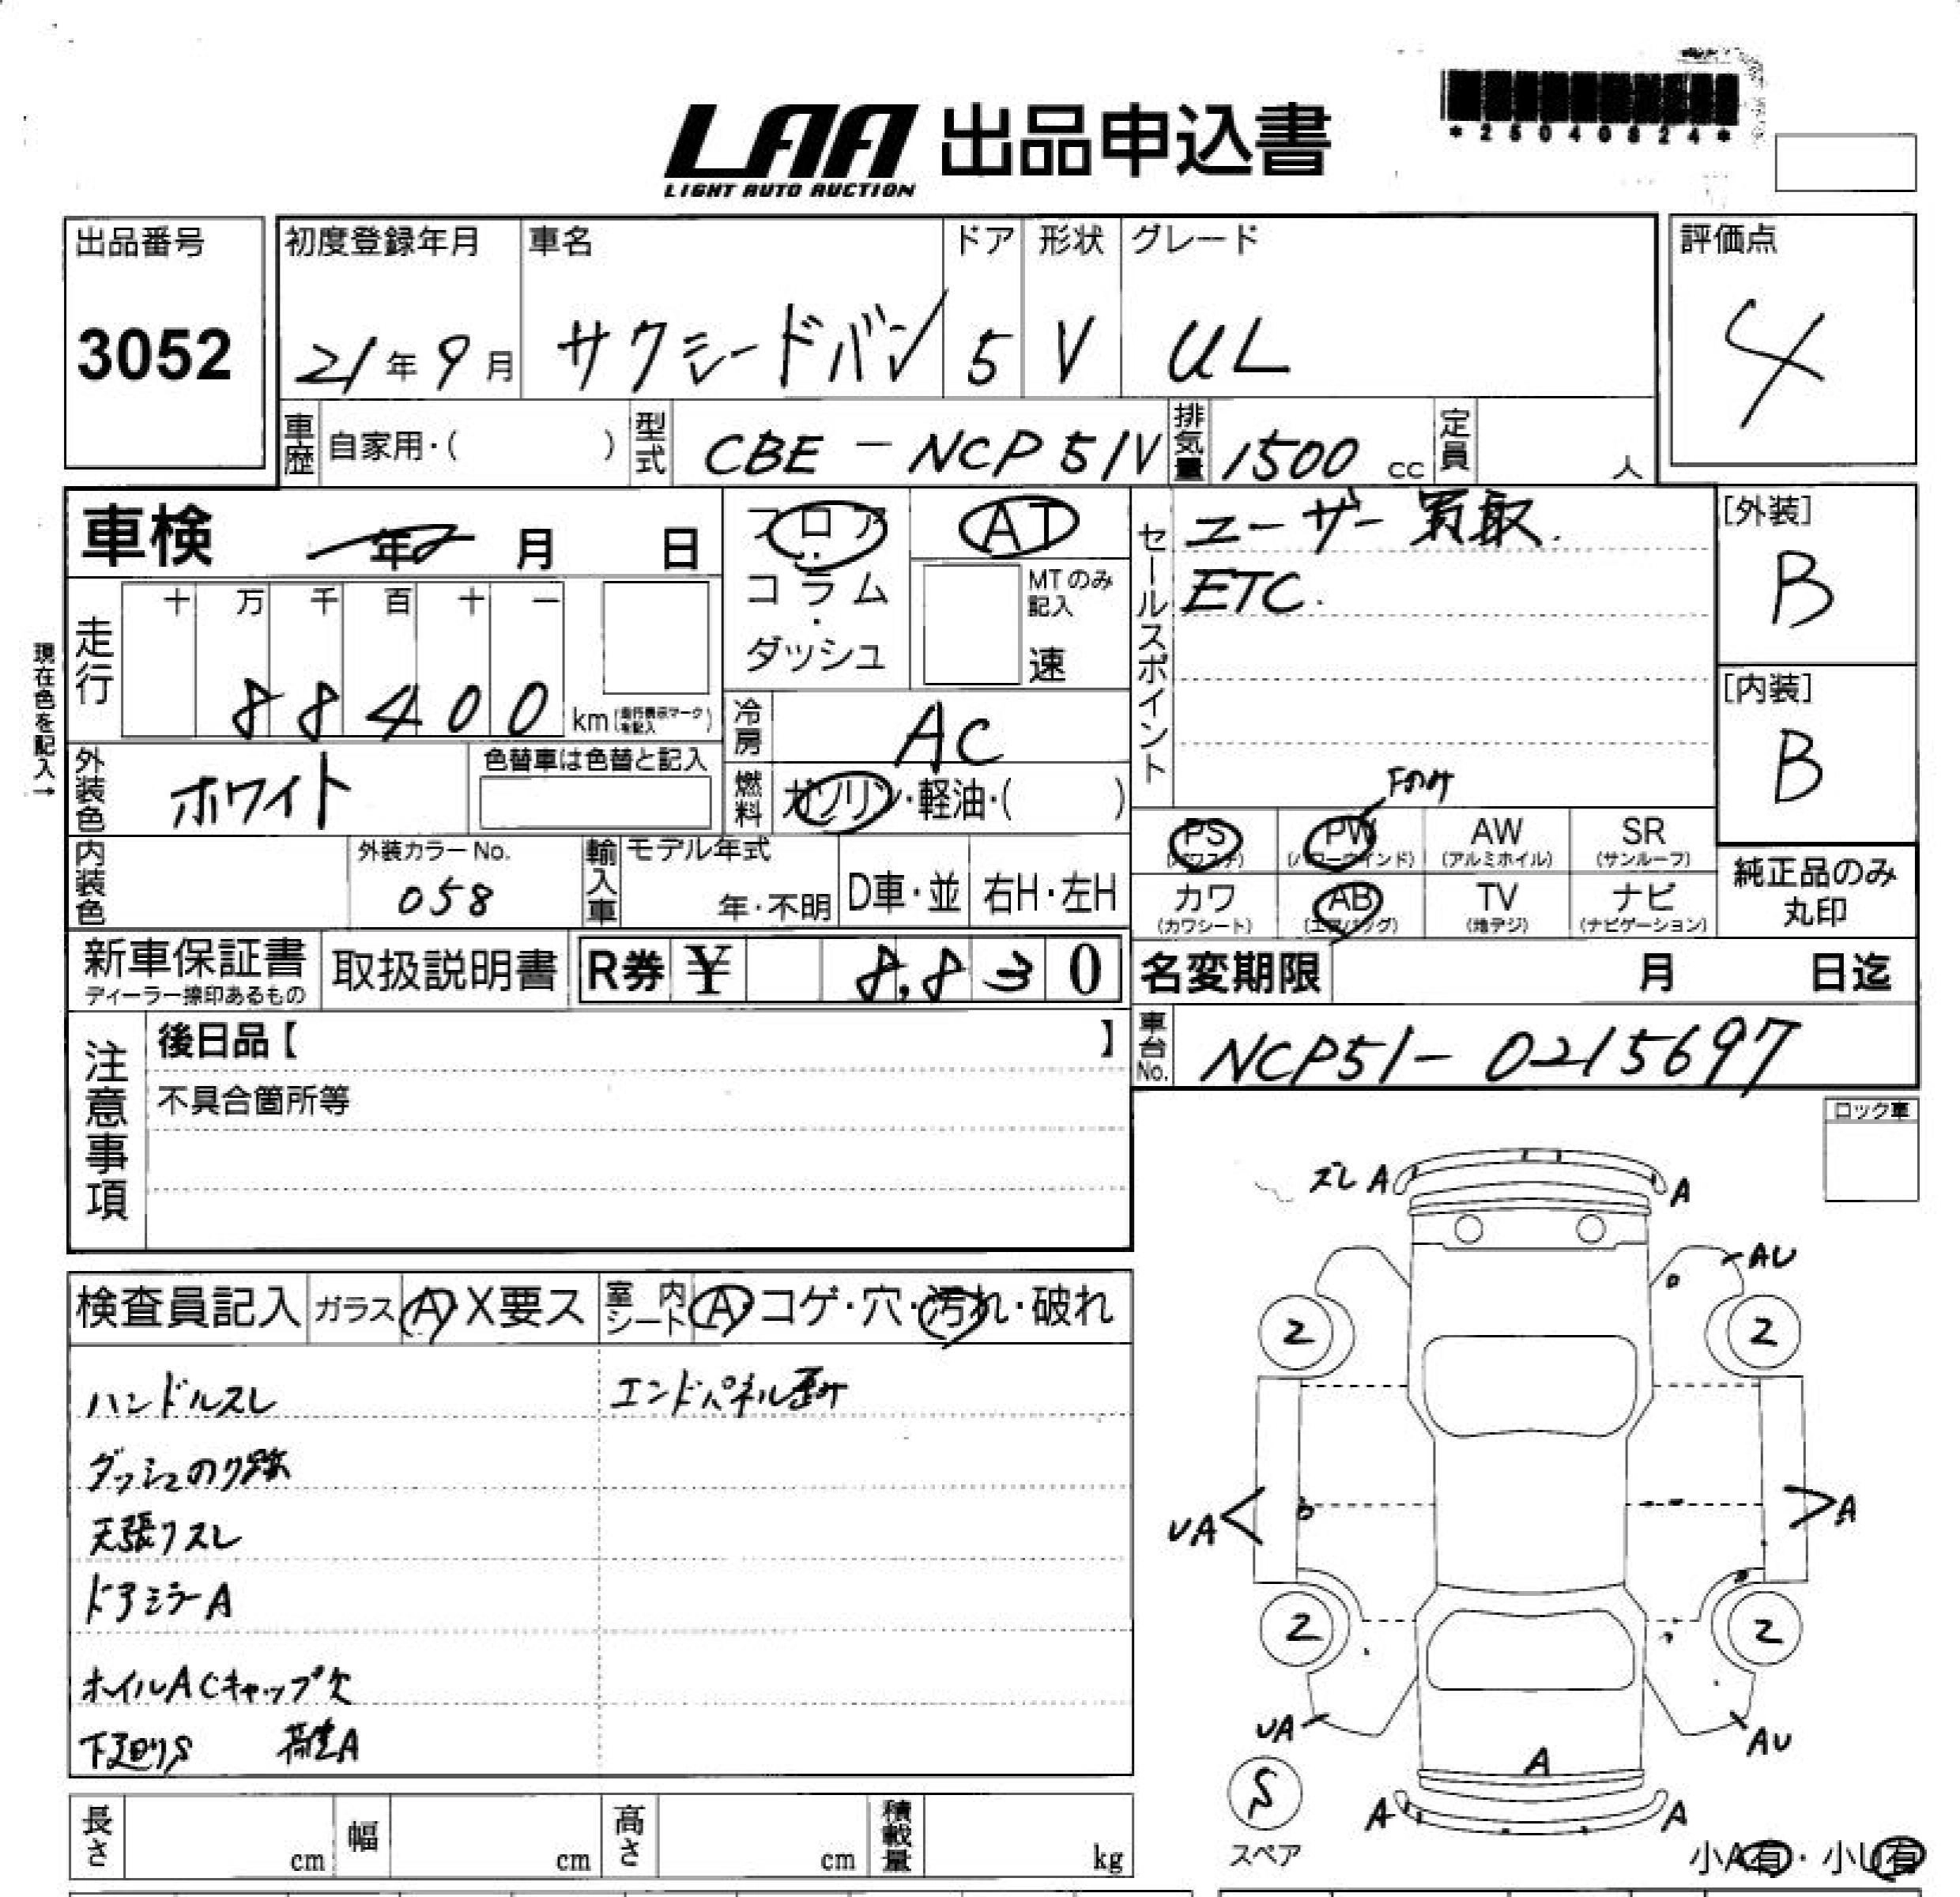 LAA 出品申込書
LIGHT AUTO AUCTION
*25040824*
出品番号
3052
初度登録年月
21年9月
車名
サクシードバン
ドア
5
形状
V
グレード
UL
評価点
4
車歴 自家用・( )
型式 CBE-NCP51V
排気量 1500 cc
定員 人
車検 年 月 日
フロア・コラム・ダッシュ
AT
MTのみ記入
速
セールスポイント
ユーザー買取.
ETC.
[外装]
B
[内装]
B
現在色を記入→
走行
十 万 千 百 十 一
88400 km (走行表示マークを記入)
冷房 AC
燃料 ガソリン・軽油・( )
外装色 ホワイト
色替車は色替と記入
内装色
外装カラーNo.
058
輸入車
モデル年式
年・不明
D車・並
右H・左H
Fのみ
PS (パワステ)
PW (パワーウインド)
AW (アルミホイル)
SR (サンルーフ)
カワ (カワシート)
AB (エアバッグ)
TV (地デジ)
ナビ (ナビゲーション)
純正品のみ丸印
新車保証書
ディーラー捺印あるもの
取扱説明書
R券 ¥ 8,830
名変期限 月 日迄
車台No. NCP51-0215697
注意事項
後日品【 】
不具合箇所等
ロック車
検査員記入
ガラス A・X要ス
室内シート A・コゲ・穴・汚れ・破れ
ハンドルスレ
エンドパネル歪み
ダッシュのり跡
天張りスレ
ドアミラーA
ホイルACキャップ欠
下廻りS 荷室A
ズレA
A
AU
2
2
UA
A
2
2
UA
AU
A
S
スペア
A
A
小A有・小U有
長さ cm
幅 cm
高さ cm
積載量 kg